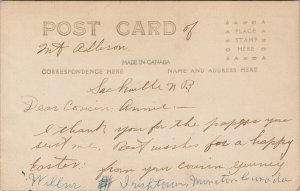 POST CARD of
Mt Allison.
PLACE
STAMP
HERE
MADE IN CANADA
CORRESPONDENCE HERE NAME AND ADDRESS HERE
Sackville N B
Dear Cousin Annie—
I thank you for the papper you
sent me. Best wishes for a happy
Easter. from your cousin
Wilbur Moncton Canada